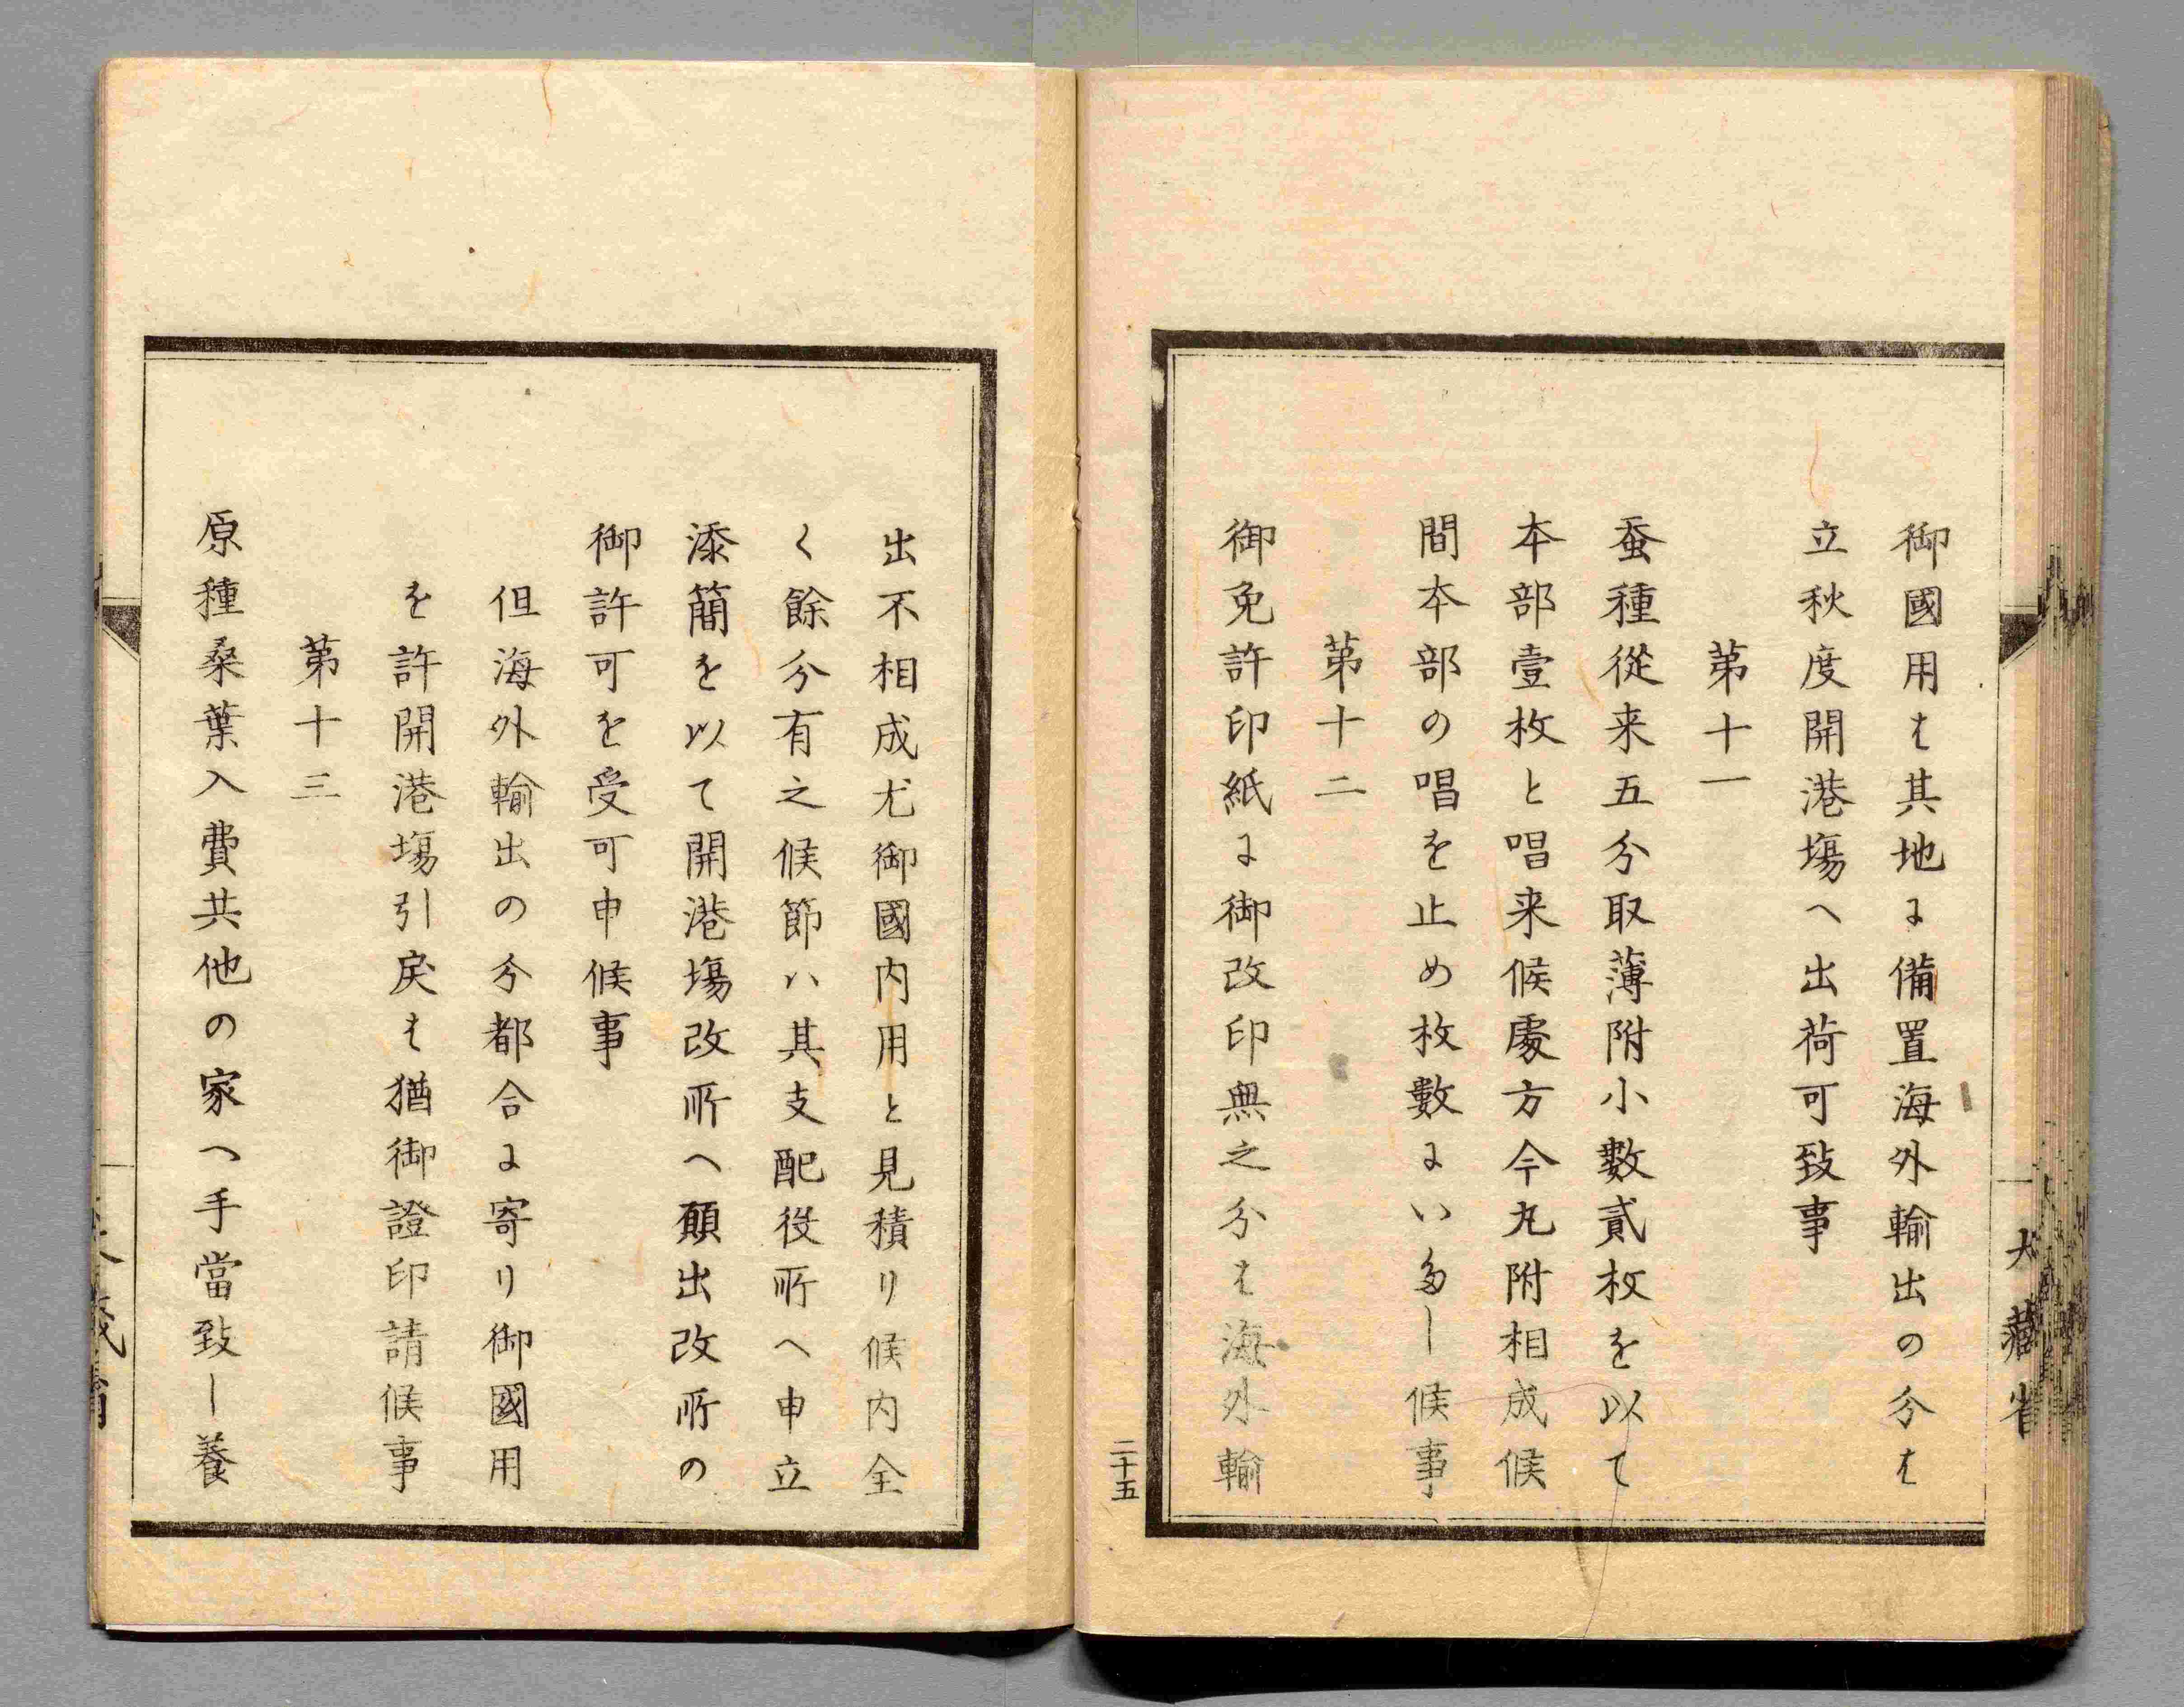 御國用は其地に備置海外輸出の分は
立秋度開港塲へ出荷可致事
第十一
蚕種從来五分取薄附小數貳枚を以て
本部壹枚と唱来候處方今丸附相成候
間本部の唱を止め枚數にいたし候事
第十二
御免許印紙に御改印無之分は海外輸
二十五
大藏省
出不相成尤御國内用と見積り候内全
く餘分有之候節ハ其支配役所へ申立
添簡を以て開港塲改所へ願出改所の
御許可を受可申候事
但海外輸出の分都合に寄り御國用
を許開港塲引戻は猶御證印請候事
第十三
原種桑葉入費共他の家へ手當致し養